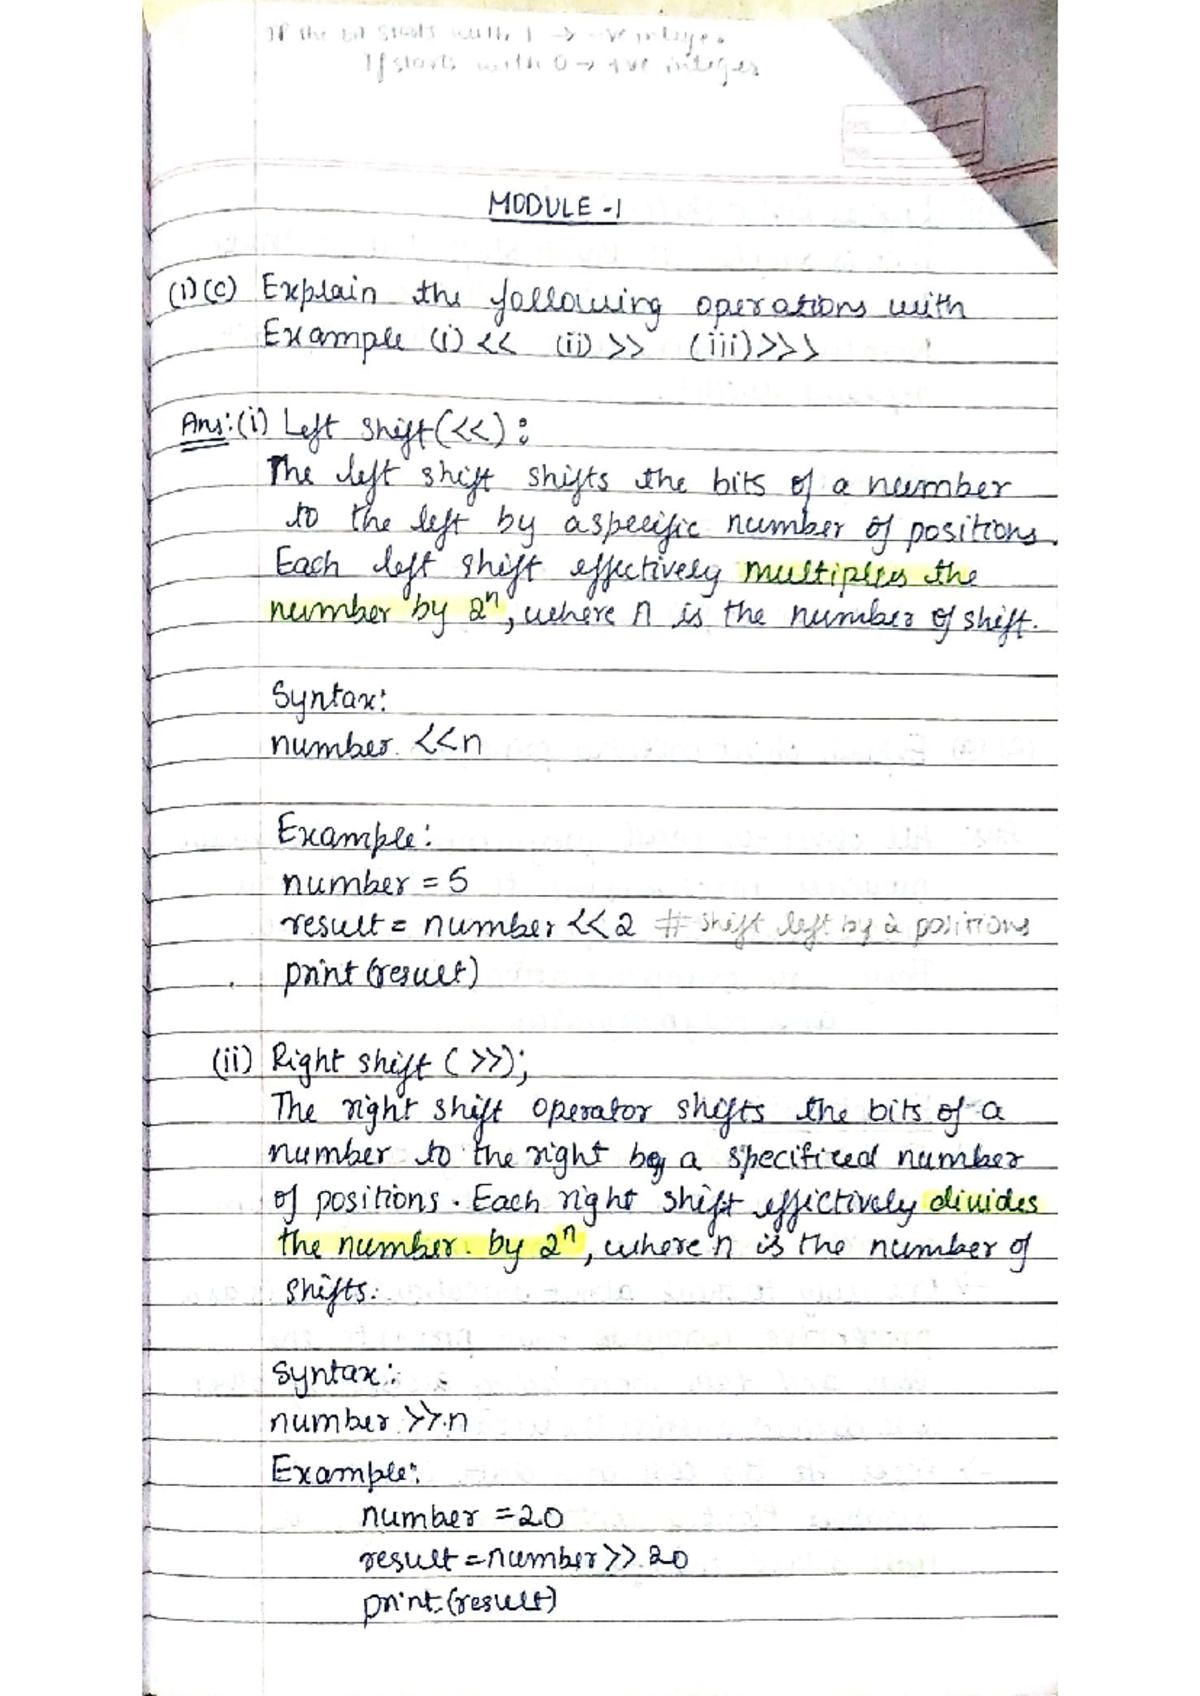 If the bit starts with 1 → -ve integer.
If starts with 0 → +ve integer
MODULE -1
(1)(c) Explain the following operations with
Example (i) << (ii) >> (iii) >>>
Ans: (i) Left shift (<<) :
The left shift shifts the bits of a number
to the left by a specific number of positions.
Each left shift effectively multiplies the
number by 2ⁿ, where n is the number of shift.
Syntax:
number <<n
Example:
number = 5
result = number <<2 # shift left by 2 positions
print (result)
(ii) Right shift ( >>);
The right shift operator shifts the bits of a
number to the right by a specificed number
of positions. Each right shift effictively divides
the number. by 2ⁿ, where n is the number of
shifts.
Syntax:
number >>n
Example:
number = 20
result = number >> 20
print (result)